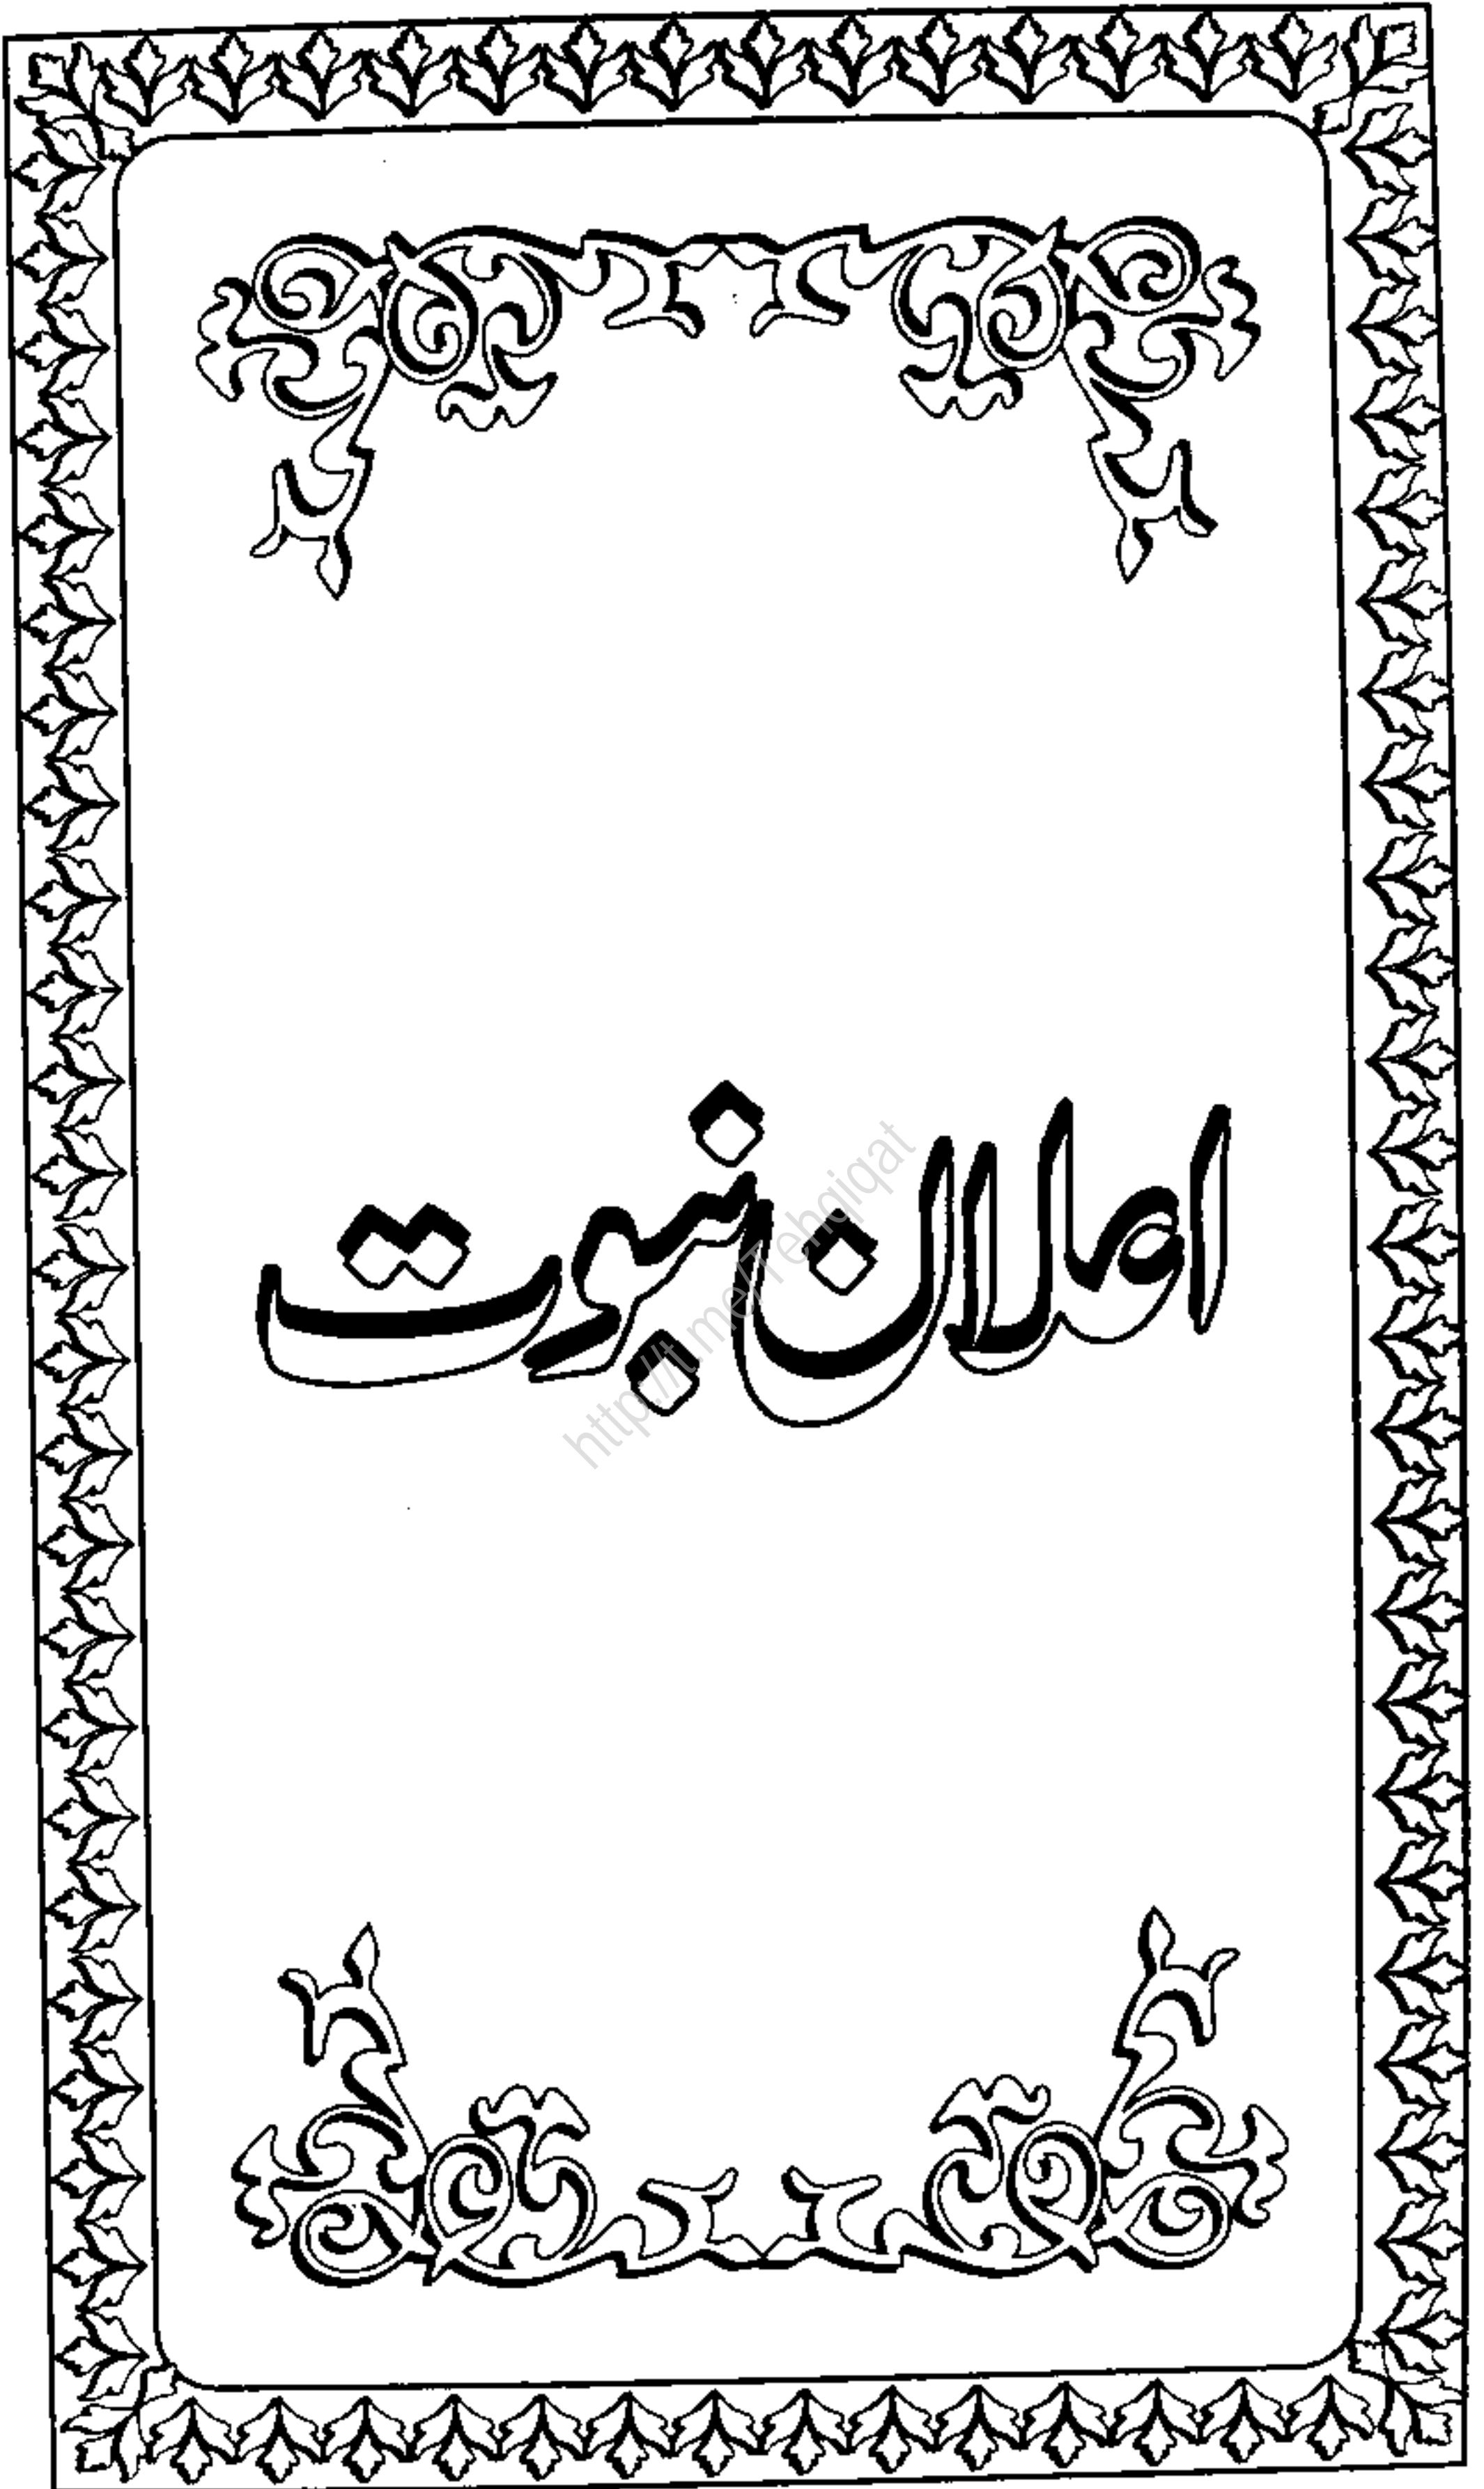 اعلان نبوت
http://t.me/Tehqiqat